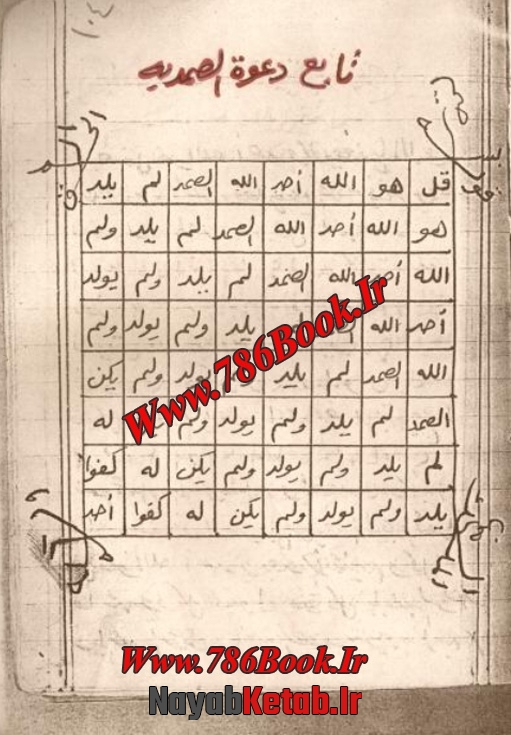 ١٠٤
تابع دعوة الصمديه
قل هو الله أحد الله الصمد لم يلد
هو الله أحد الله الصمد لم يلد ولم
الله أحد الله الصمد لم يلد ولم يولد
أحد الله يلد ولم يولد ولم
الله الصمد لم يلد يولد ولم يكن
الصمد لم يلد ولم يولد ولم له
لم يلد ولم يولد ولم يكن له كفوا
يلد ولم يولد ولم يكن له كفوا أحد
Www.786Book.Ir
Www.786Book.Ir
NayabKetab.Ir